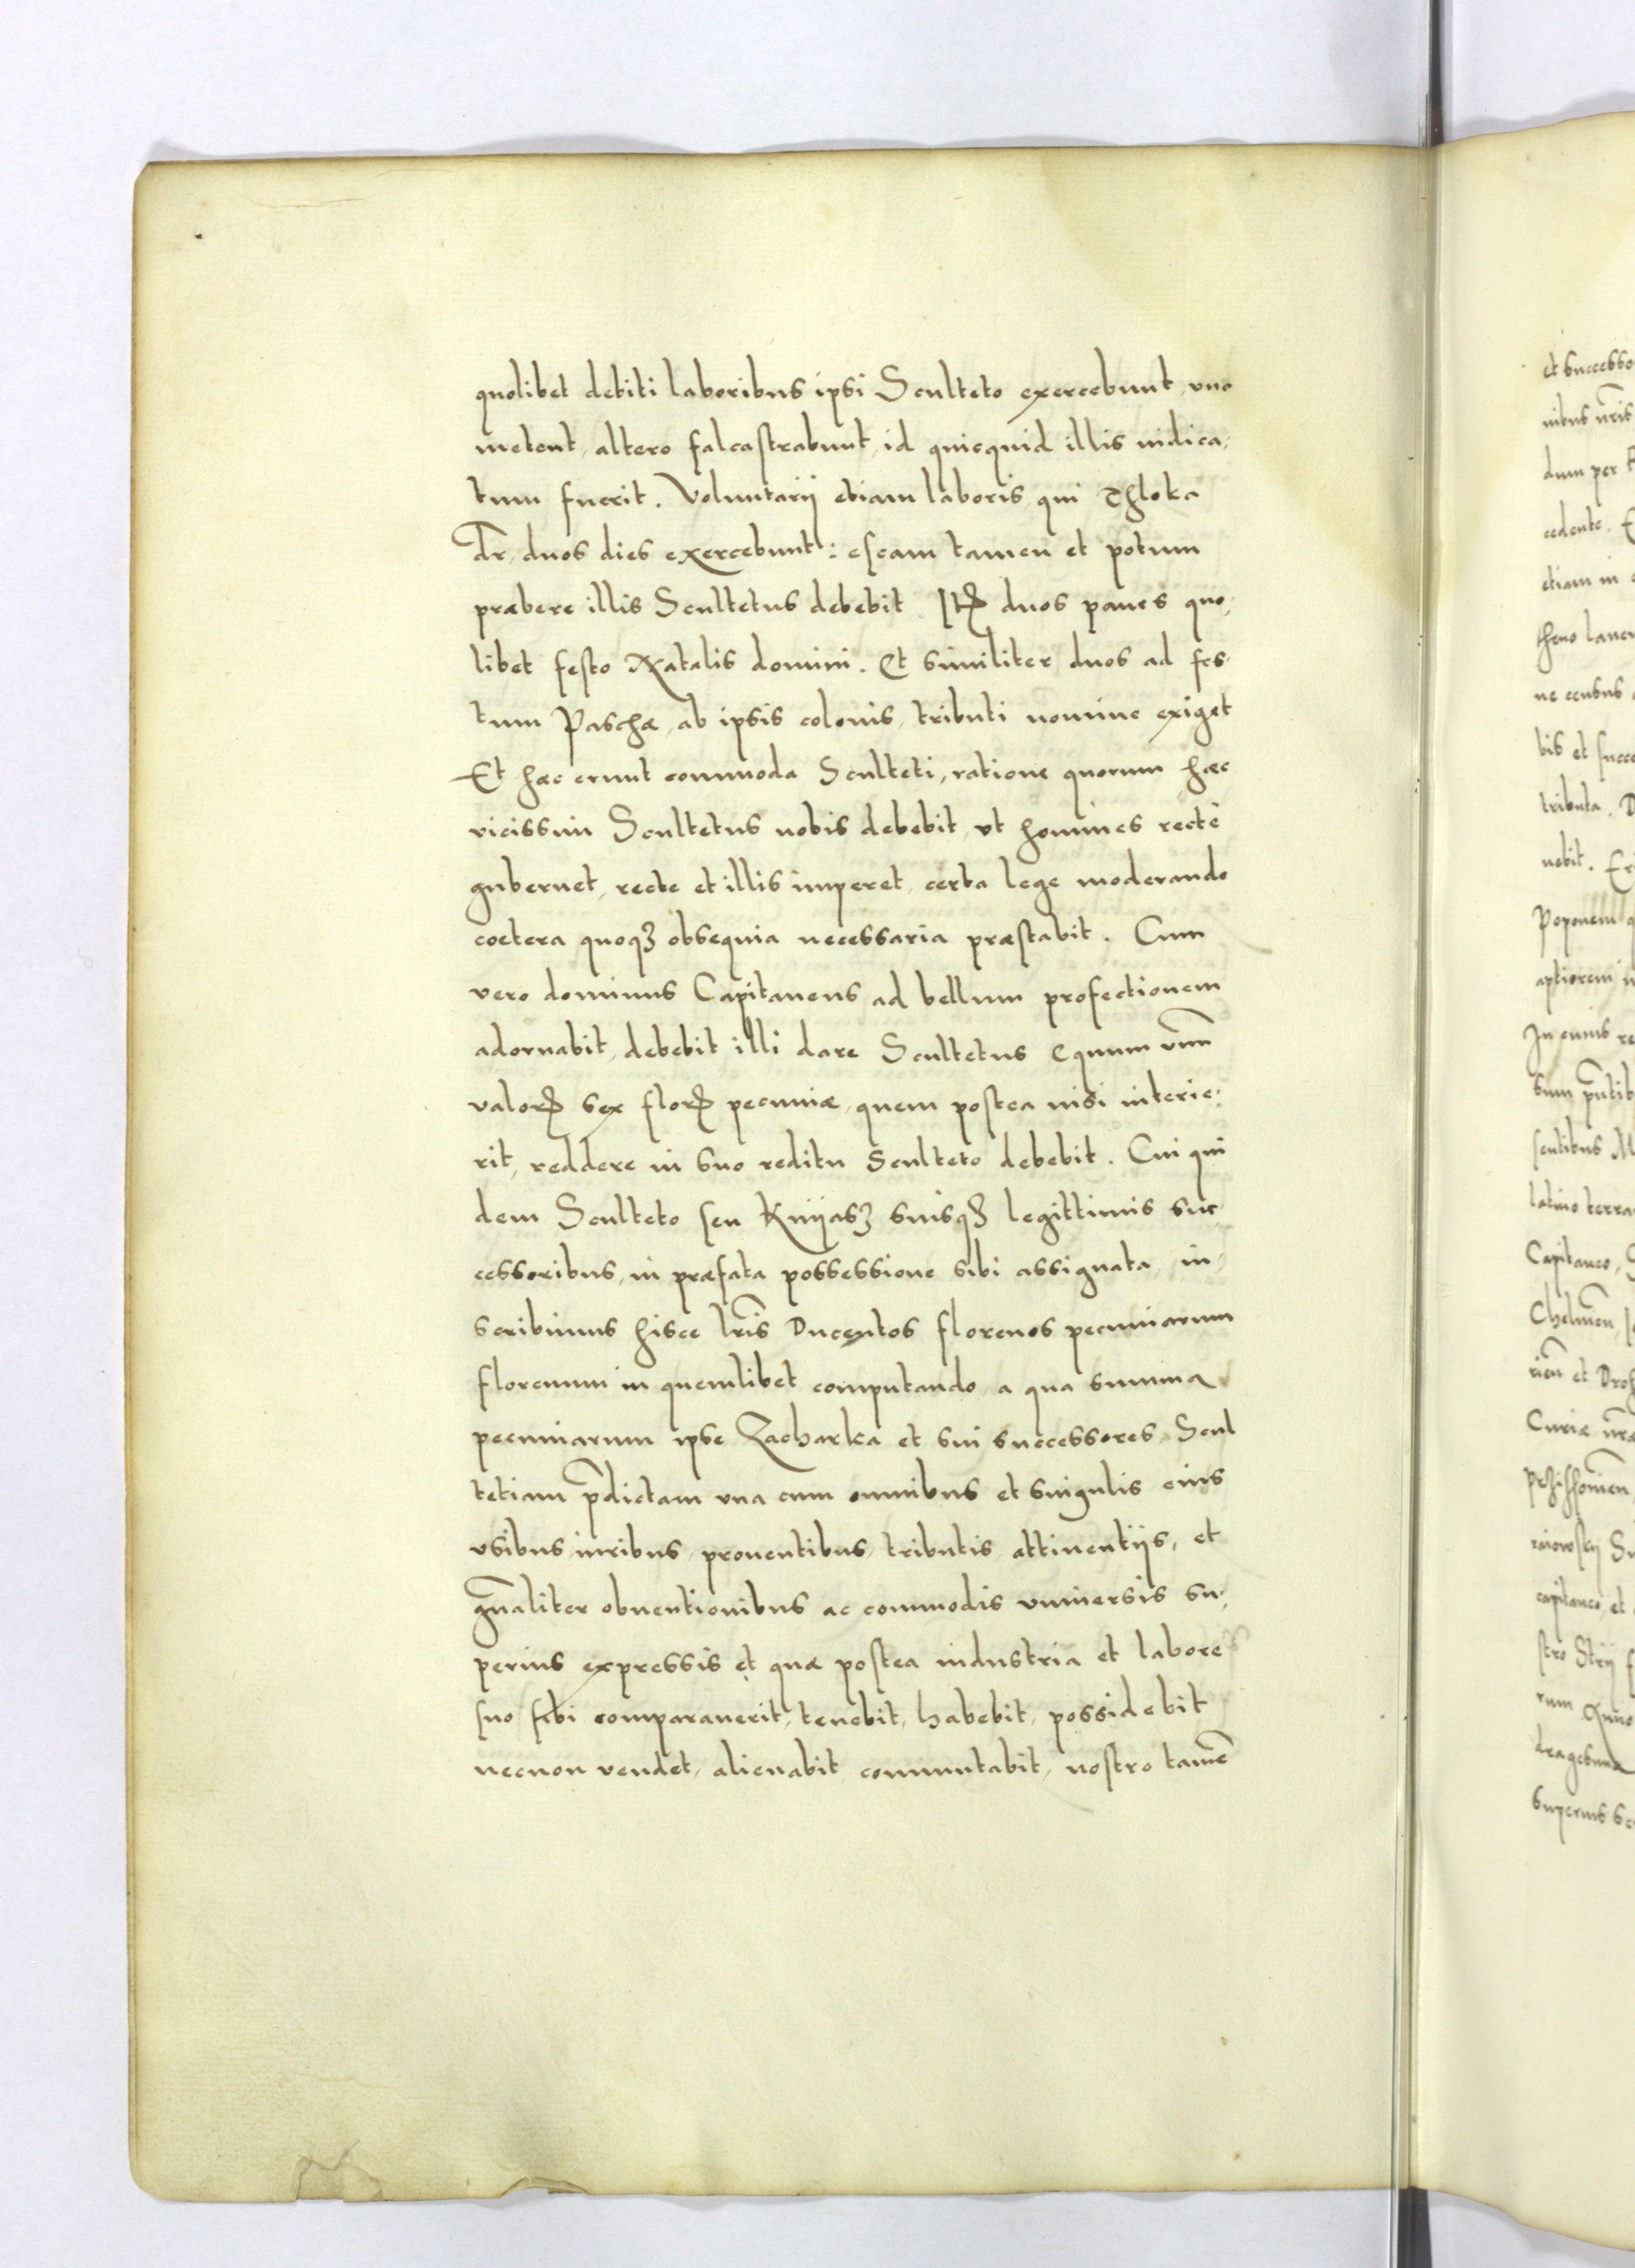 quolibet debiti laboribus ipsi Sculteto exercebunt, uno
metent, altero falcastrabunt, id quicquid illis indica,
tum fuerit. Voluntarij etiam laboris, qui Thloka
dr̄, duos dies exercebunt: escam tamen et potum
præbere illis Scultetus debebit. Itꝫ duos panes quo,
libet festo Natalis domini. Et similiter duos ad fes,
tum Paschæ, ab ipsis colonis, tributi nomine exiget
Et hæc erunt commoda Sculteti, ratione quorum, hæc
vicissim Scultetus nobis debebit, vt homines rectè
gubernet, recte et illis imperet, certa lege moderando
coetera quoqꝫ obsequia necessaria præstabit. Cum
vero dominus Capitaneus ad bellum profectionem
adornabit, debebit illi dare Scultetus equum vnū
valorꝫ sex florꝫ pecuniæ, quem postea nisi interie,
rit, reddere in suo reditu Sculteto debebit. Cui qui
dem Sculteto seu Knijasꝫ suisqꝫ legittimis suc,
cessoribus, in præfata possessione sibi assignata, in,
scribimus hisce lr̄is Ducentos florenos pecuniarum
florenum in quemlibet computando, a qua summa
pecuniarum ipse Zacharka et sui successores, Scul
tetiam p̄dictam vna cum omnibus et singulis eius
vsibus, iuribus, prouentibus, tributis, attinentijs, et
gn̄aliter obuentionibus ac commodis vniuersis su,
perius expressis et quæ postea industria et labore
suo sibi comparauerit, tenebit, habebit, possidebit
necnon vendet, alienabit, commutabit, nostro tamē
et successo
nibus nr̄is
dum per
cedente. E
etiam in
ne census
bis et succe
tributa. D
nebit. Er
Poponem q
aptiorem
In cuius re
sentibus M
latino terra
Capitaneo, S
Chelmen̄
rien̄ et Droh
Curiæ nr̄æ
capitaneo, et
stro Strij
rum Anno
superius sc